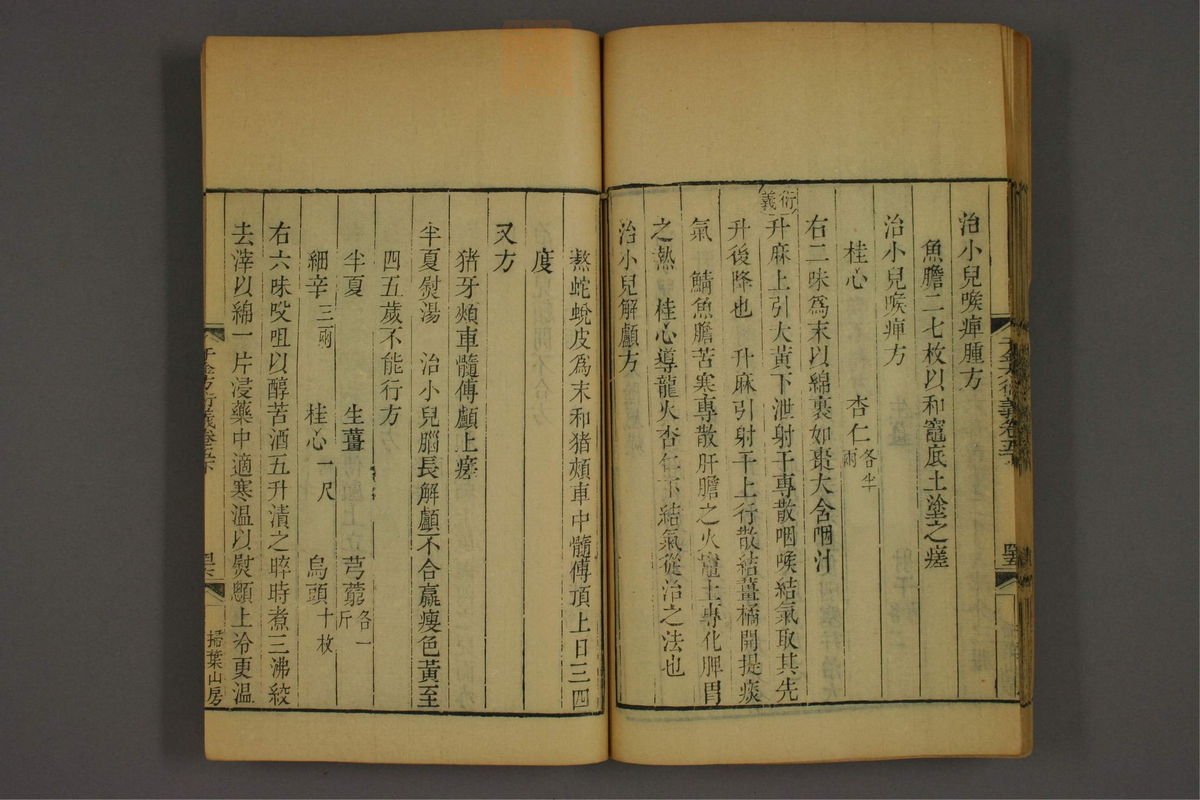 治小兒喉痺腫方
魚膽二七枚以和竈底土塗之瘥
治小兒喉痺方
桂心 杏仁各半兩
右二味為末以綿裹如棗大含咽汁
衍義
升麻上引大黃下泄射干專散咽喉結氣取其先
升後降也 升麻引射干上行散結薑橘開提痰
氣 鯖魚膽苦寒專散肝膽之火竈土專化脾胃
之熱 桂心導龍火杏仁下結氣從治之法也
治小兒解顱方
熬蛇蛻皮為末和猪頰車中髓傅頂上日三四
度
又方
猪牙頰車髓傅顱上瘥
半夏熨湯 治小兒腦長解顱不合羸瘦色黃至
四五歲不能行方
半夏 生薑 芎藭各一斤
細辛三兩 桂心一尺 烏頭十枚
右六味㕮咀以醇苦酒五升漬之晬時煮三沸絞
去滓以綿一片浸藥中適寒溫以熨顱上冷更溫
千金方衍義卷五下
掃葉山房